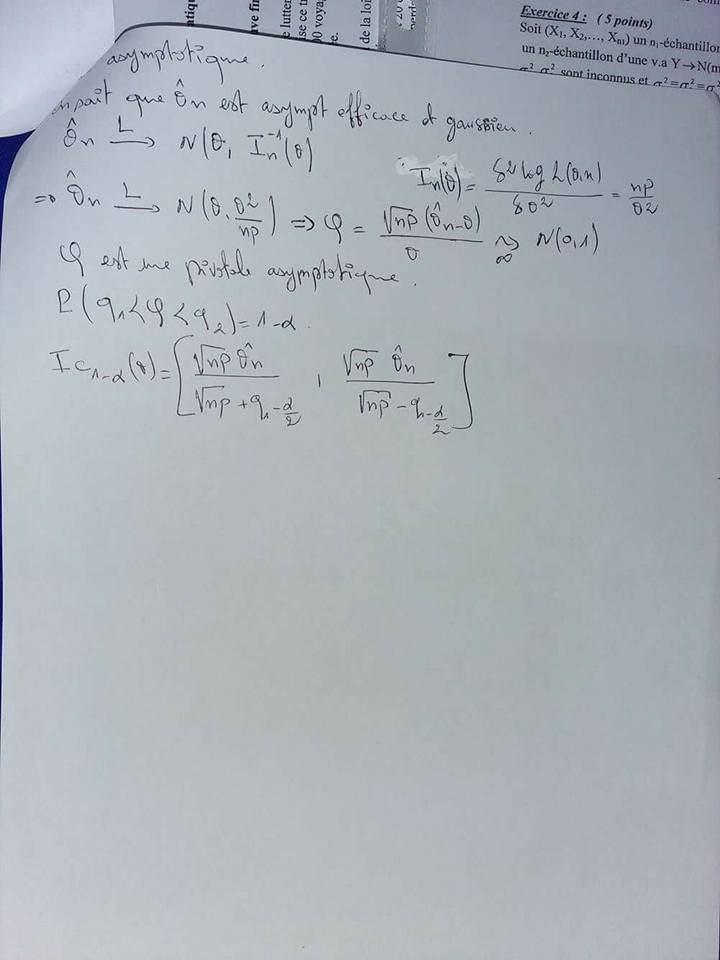 Exercice 4 : (5 points)
Soit (X₁, X₂,…, Xn₁) un n₁-échantillon
un n₂-échantillon d'une v.a Y→N(m
sont inconnus et σ²=σ²=σ²
de la loi
asymptotique.
sait que θ̂n est asympt efficace et gaussien.
θ̂n —L→ N(θ, In⁻¹(θ)
In(θ) = δ² log L(θ,x) / δθ² = np / θ²
=> θ̂n —L→ N(θ, θ²/np) => φ = √np (θ̂n-θ) / θ ~∞ N(0,1)
φ est une pivotale asymptotique.
P(q₁<φ<q₂)=1-α.
IC₁₋α(θ) = [ √np θ̂n / (√np + q₁₋α/₂) , √np θ̂n / (√np - q₁₋α/₂) ]